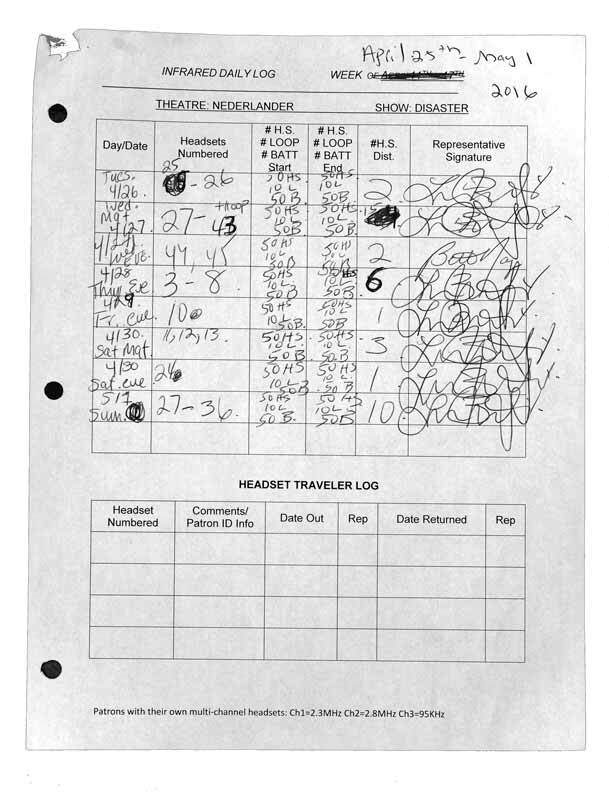 April 25th - May 1
INFRARED DAILY LOG WEEK OF
2016
THEATRE: NEDERLANDER SHOW: DISASTER
Day/Date
Headsets Numbered
# H.S. # LOOP # BATT Start
# H.S. # LOOP # BATT End
#H.S. Dist.
Representative Signature
Tues. 4/26 25 - 26 50HS 10L 50B 50HS 10L 50B 2
Wed. Mat 4/27. 27- 43 +loop 50HS 10L 50B 50HS 10L 50B
4/27 Wed EVE. 44, 45 50HS 10L 50B 50HS 10L 50B 2
4/28 Thu. Eve 3 - 8 50HS 10L 50B 50HS 10L. 50B. 6
4/29 Fr. eve. 10 50HS 10L 50B. 50HS 10L 50B 1
4/30. Sat Mat. 11, 12, 13. 50HS 10L. 50B 50HS. 10L. 50B 3
4/30 Sat. eve 26 50HS 10L 50B 50HS 10L 50B 1
5/1 Sun. 27 - 36. 50HS 10L 50B. 50HS 10L 50B 10
HEADSET TRAVELER LOG
Headset Numbered
Comments/ Patron ID Info
Date Out
Rep
Date Returned
Rep
Patrons with their own multi-channel headsets: Ch1=2.3MHz Ch2=2.8MHz Ch3=95KHz